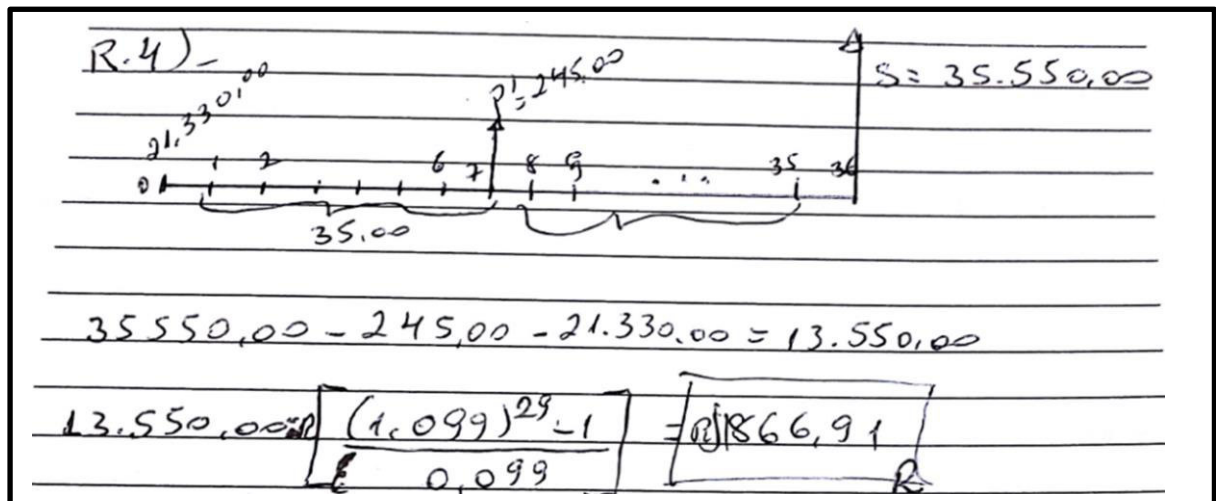 R.4)-
21.330,00
P'=245,00
S= 35.550,00
0 1 2 6 7 8 9 ... 35 36
35,00
35550,00 - 245,00 - 21.330,00 = 13.550,00
13.550,00=R (1,099)^29 - 1 / 0,099 = R 1866,91
R